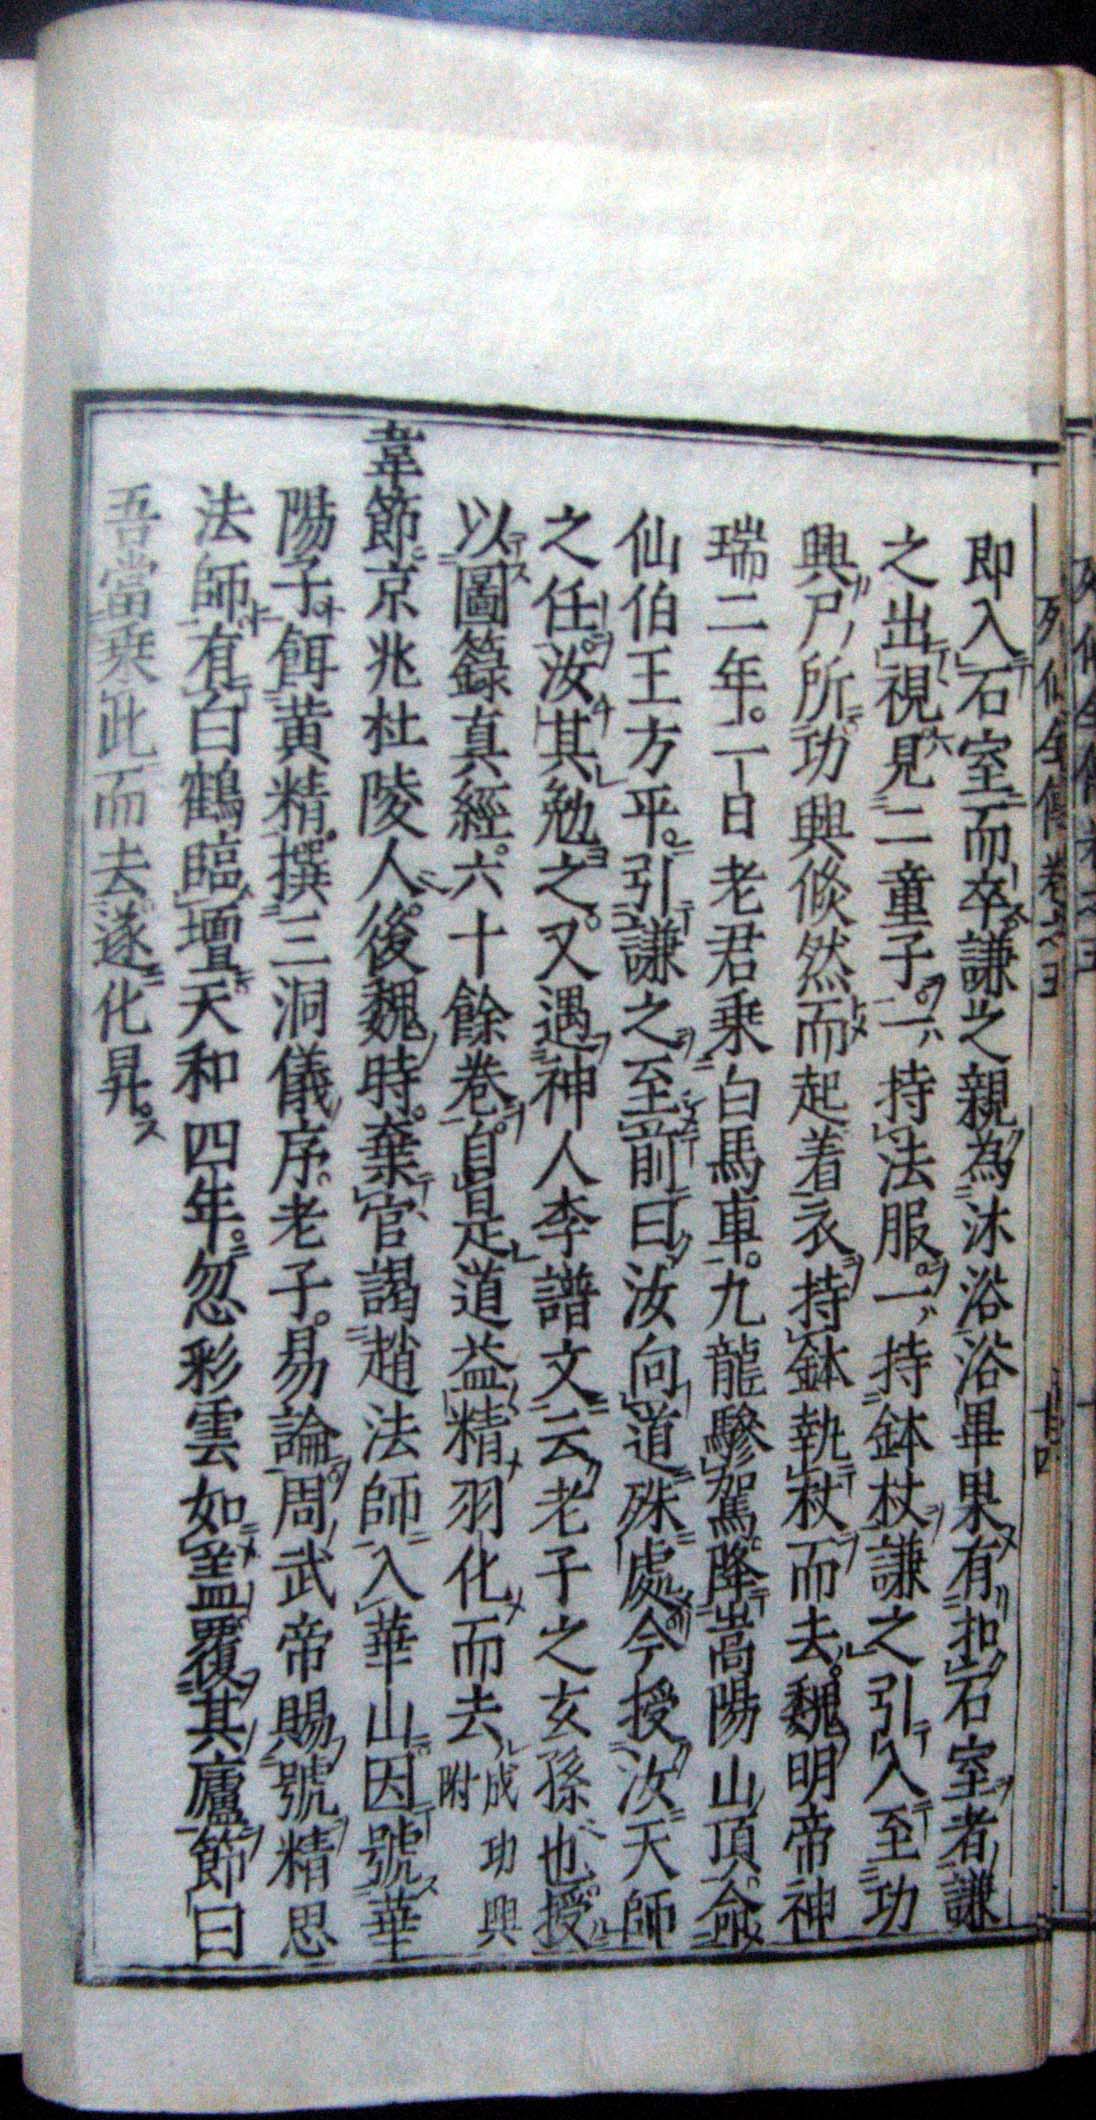 即入石室而卒謙之親為沐浴浴畢果有扣石室者謙
之出視見二童子一持法服一持鉢杖謙之引入至功
興尸所功興倏然而起着衣持鉢執杖而去魏明帝神
瑞二年一日老君乗白馬車九龍驂駕降嵩陽山頂命
仙伯王方平引謙之至前曰汝向道殊處今授汝天師
之任汝其勉之又遇神人李譜文云老子之玄孫也授
以圖籙真經六十餘卷自是道益精羽化而去成功興附
韋節京兆杜陵人後魏時棄官謁趙法師入華山因號華
陽子餌黄精撰三洞儀序老子易論周武帝賜號精思
法師有白鶴臨壇天和四年忽彩雲如蓋覆其廬節曰
吾當乗此而去遂化昇